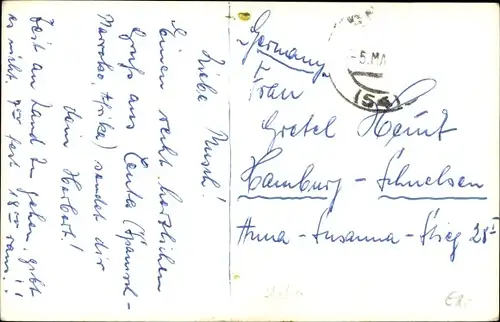 Liebe Musch!
Einen recht herzlichen
Gruß aus Ceuta (Spanisch-
Marokko, Afrika) sendet dir
Dein Herbert!
Zeit an Land zu gehen, gibt
es nicht, fest 18°° raus!!
„Germany“
Frau
Gretel
Hamburg-Schnelsen
Anna-Susanna-Stieg 28 I
5.MA
(54)